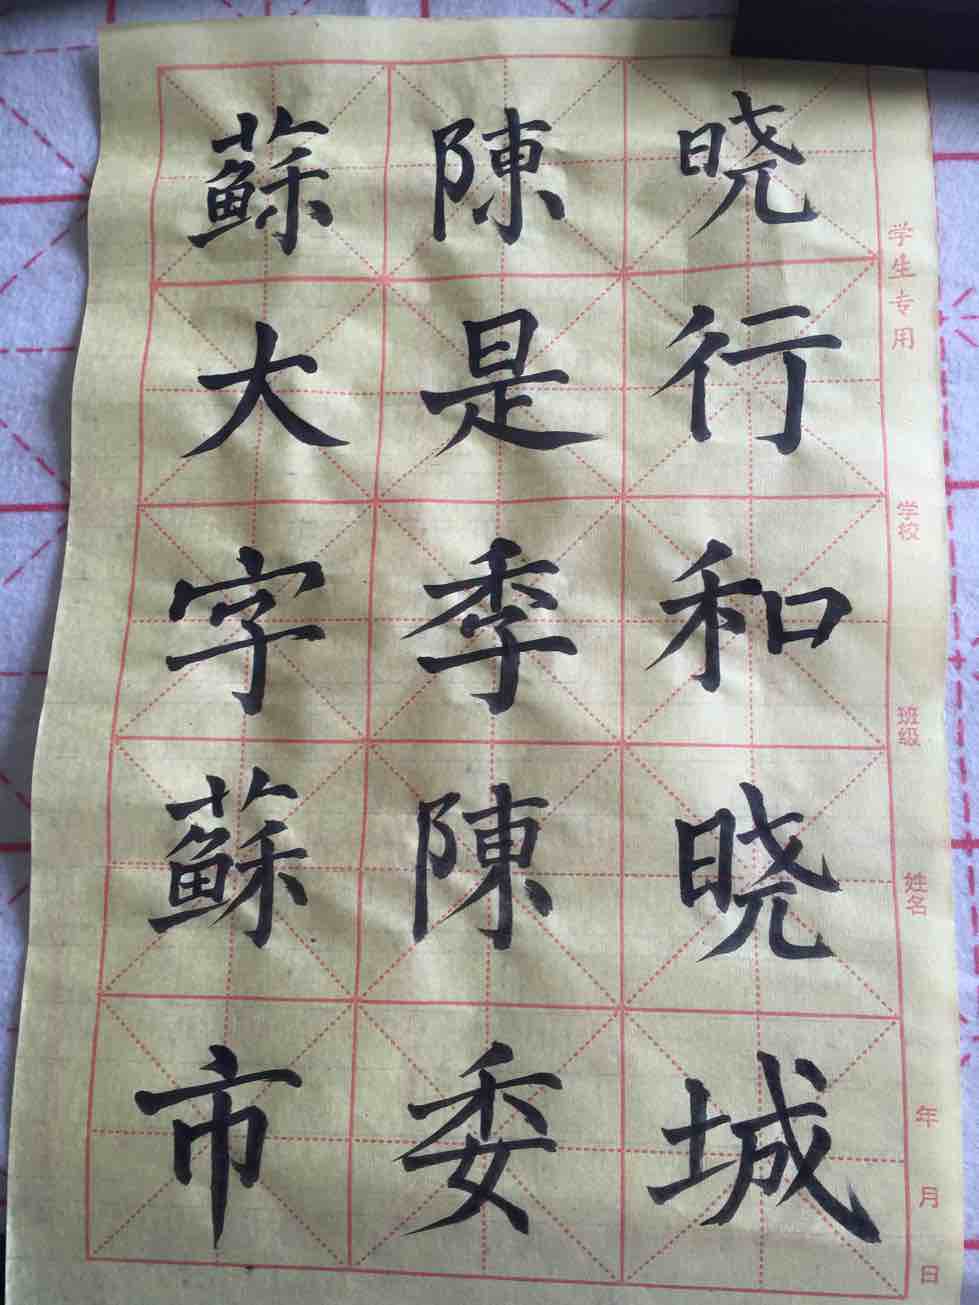 学生专用 学校 班级 姓名 年 月 日
晓行和晓城
陳是季陳委
蘇大字蘇市